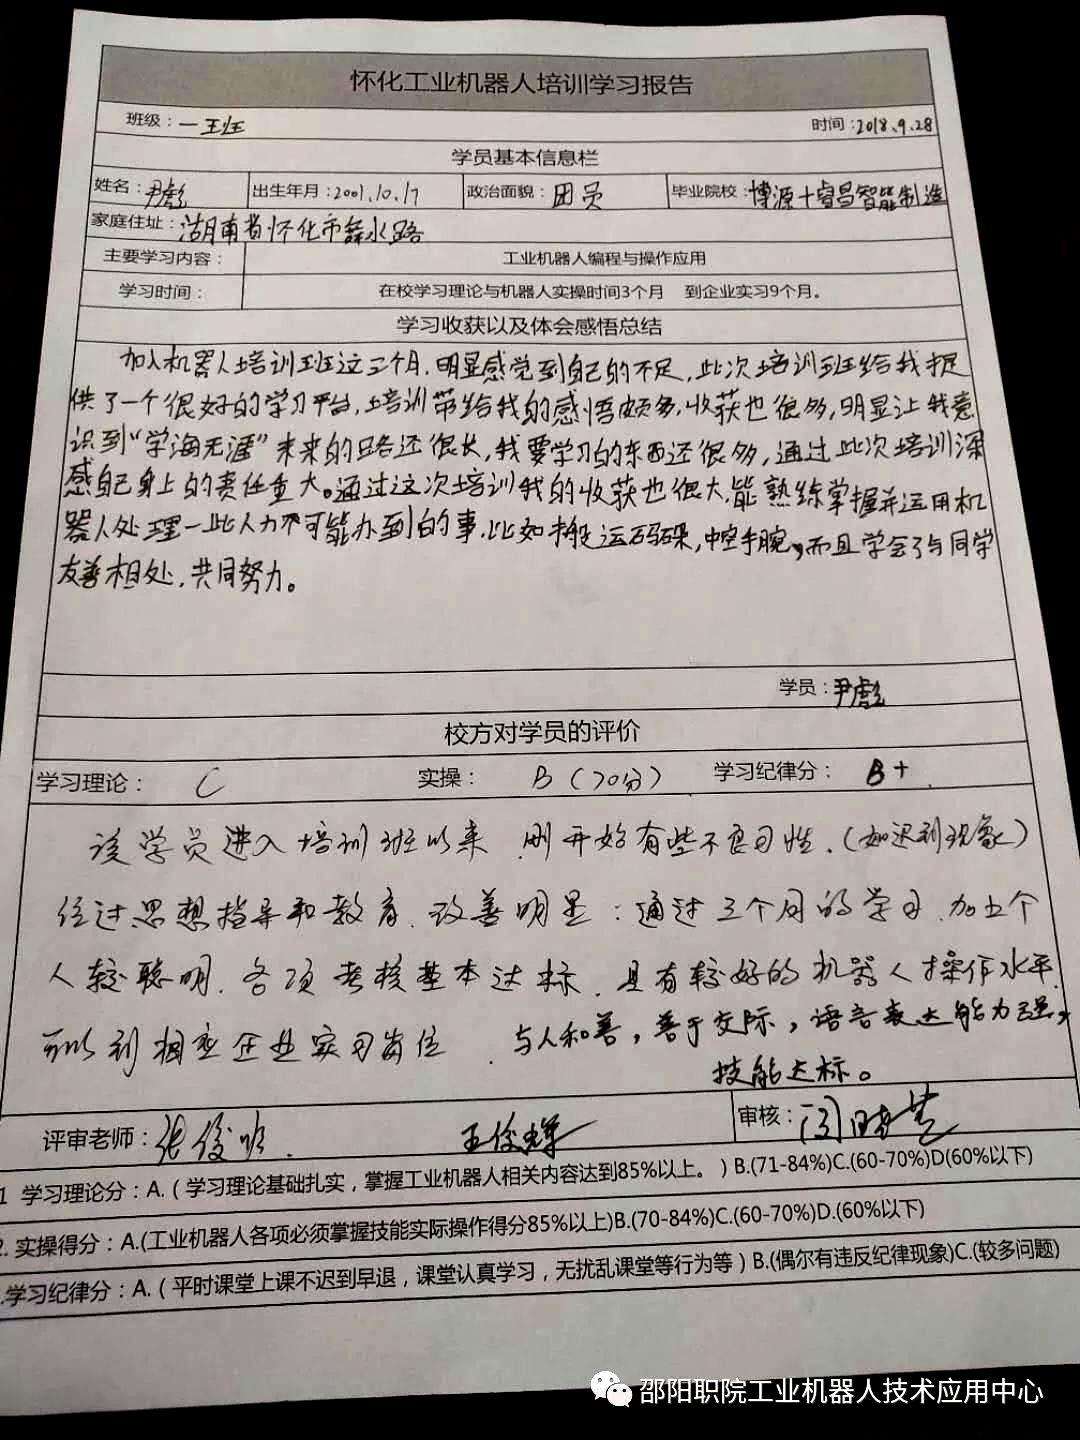 怀化工业机器人培训学习报告
班级：一班 时间：2018.9.28
学员基本信息栏
姓名：尹彪 出生年月：2001.10.17 政治面貌：团员 毕业院校：博源十睿昌智能制造
家庭住址：湖南省怀化市舞水路
主要学习内容： 工业机器人编程与操作应用
学习时间： 在校学习理论与机器人实操时间3个月 到企业实习9个月。
学习收获以及体会感悟总结
加入机器人培训班这三个月，明显感觉到自己的不足，此次培训班给我提
供了一个很好的学习平台，培训带给我的感悟颇多，收获也很多，明显让我意
识到“学海无涯”未来的路还很长，我要学习的东西还很多，通过此次培训深
感自己身上的责任重大。通过这次培训我的收获也很大，能熟练掌握并运用机
器人处理一些人力不可能办到的事，比如搬运码垛，中空手腕，而且学会了与同学
友善相处，共同努力。
学员：尹彪
校方对学员的评价
学习理论： C 实操： B（70分） 学习纪律分： B+
该学员进入培训班以来，刚开始有些不良习性，（如迟到现象）
经过思想指导和教育，改善明显；通过三个月的学习，加上个
人较聪明，各项考核基本达标，具有较好的机器人操作水平，
可以到相应企业实习岗位，与人和善，善于交际，语言表达能力强，
技能达标。
评审老师：张俊 王俊辉 审核：
1 学习理论分：A.（学习理论基础扎实，掌握工业机器人相关内容达到85%以上。）B.(71-84%)C.(60-70%)D(60%以下)
2. 实操得分：A.(工业机器人各项必须掌握技能实际操作得分85%以上)B.(70-84%)C.(60-70%)D.(60%以下)
.学习纪律分：A.（平时课堂上课不迟到早退，课堂认真学习，无扰乱课堂等行为等）B.(偶尔有违反纪律现象)C.(较多问题)
邵阳职院工业机器人技术应用中心